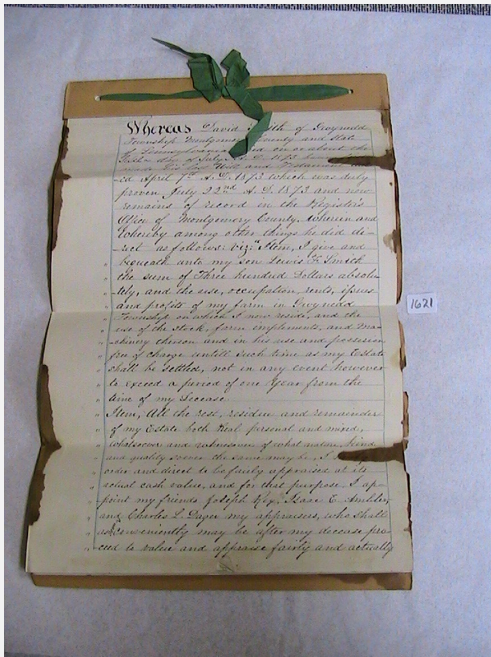 Whereas David Smith of Gwynedd
Township Montgomery County and State
of on or about the
day of July A. D. 1873
made his last Will and Testament
ed April 7th A. D. 1873 which was duly
proven July 22nd A. D. 1873 and now
remains of record in the Register's
Office of Montgomery County, wherein and
whereby among other things he did di-
rect as follows: viz: Item, I give and
bequeath unto my son Lewis F. Smith
the sum of Three hundred Dollars absolu-
tely, and the use, occupation, rents, issues
and profits of my farm in Gwynedd
Township on which I now reside, and the
use of the stock, farm impliments, and ma-
chinery thereon and in his use and possession
free of charge untill such time as my Estate
shall be settled, not in any event however
to exceed a period of one Year from the
time of my decease
Item, All the rest, residue and remainder
of my Estate both Real personal and mixed,
whatsoever and wheresoever of what nature, kind
and quality soever the same may be, I
order and direct to be fairly appraised at its
actual cash value, and for that purpose I ap-
point my friends Joseph
and Charles L. my appraisers, who shall
as conveniently may be after my decease pro-
ceed to value and appraise fairly and actually
1621